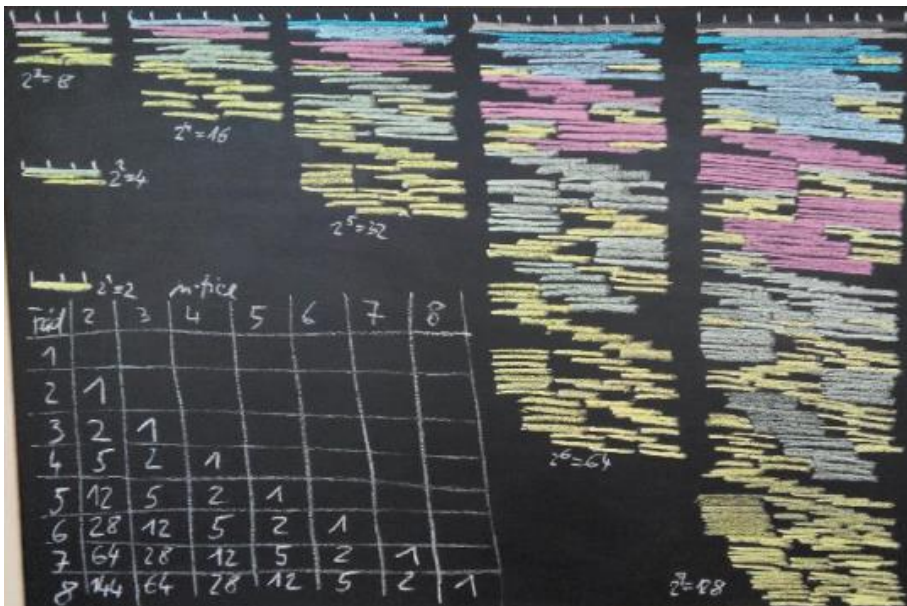 2³=8
2⁴=16
2²=4
2⁵=32
2¹=2
n-tice
2 3 4 5 6 7 8
1
2 1
3 2 1
4 5 2 1
5 12 5 2 1
6 28 12 5 2 1
7 64 28 12 5 2 1
8 144 64 28 12 5 2 1
2⁶=64
2⁷=128